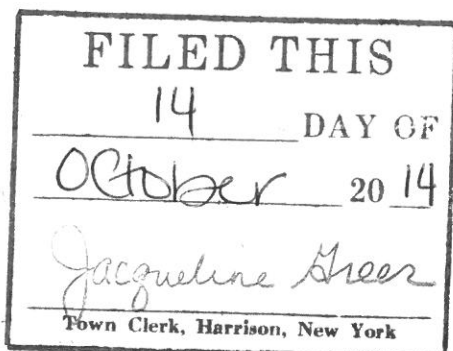 FILED THIS
14 DAY OF
October 20 14
Jacqueline Greer
Town Clerk, Harrison, New York